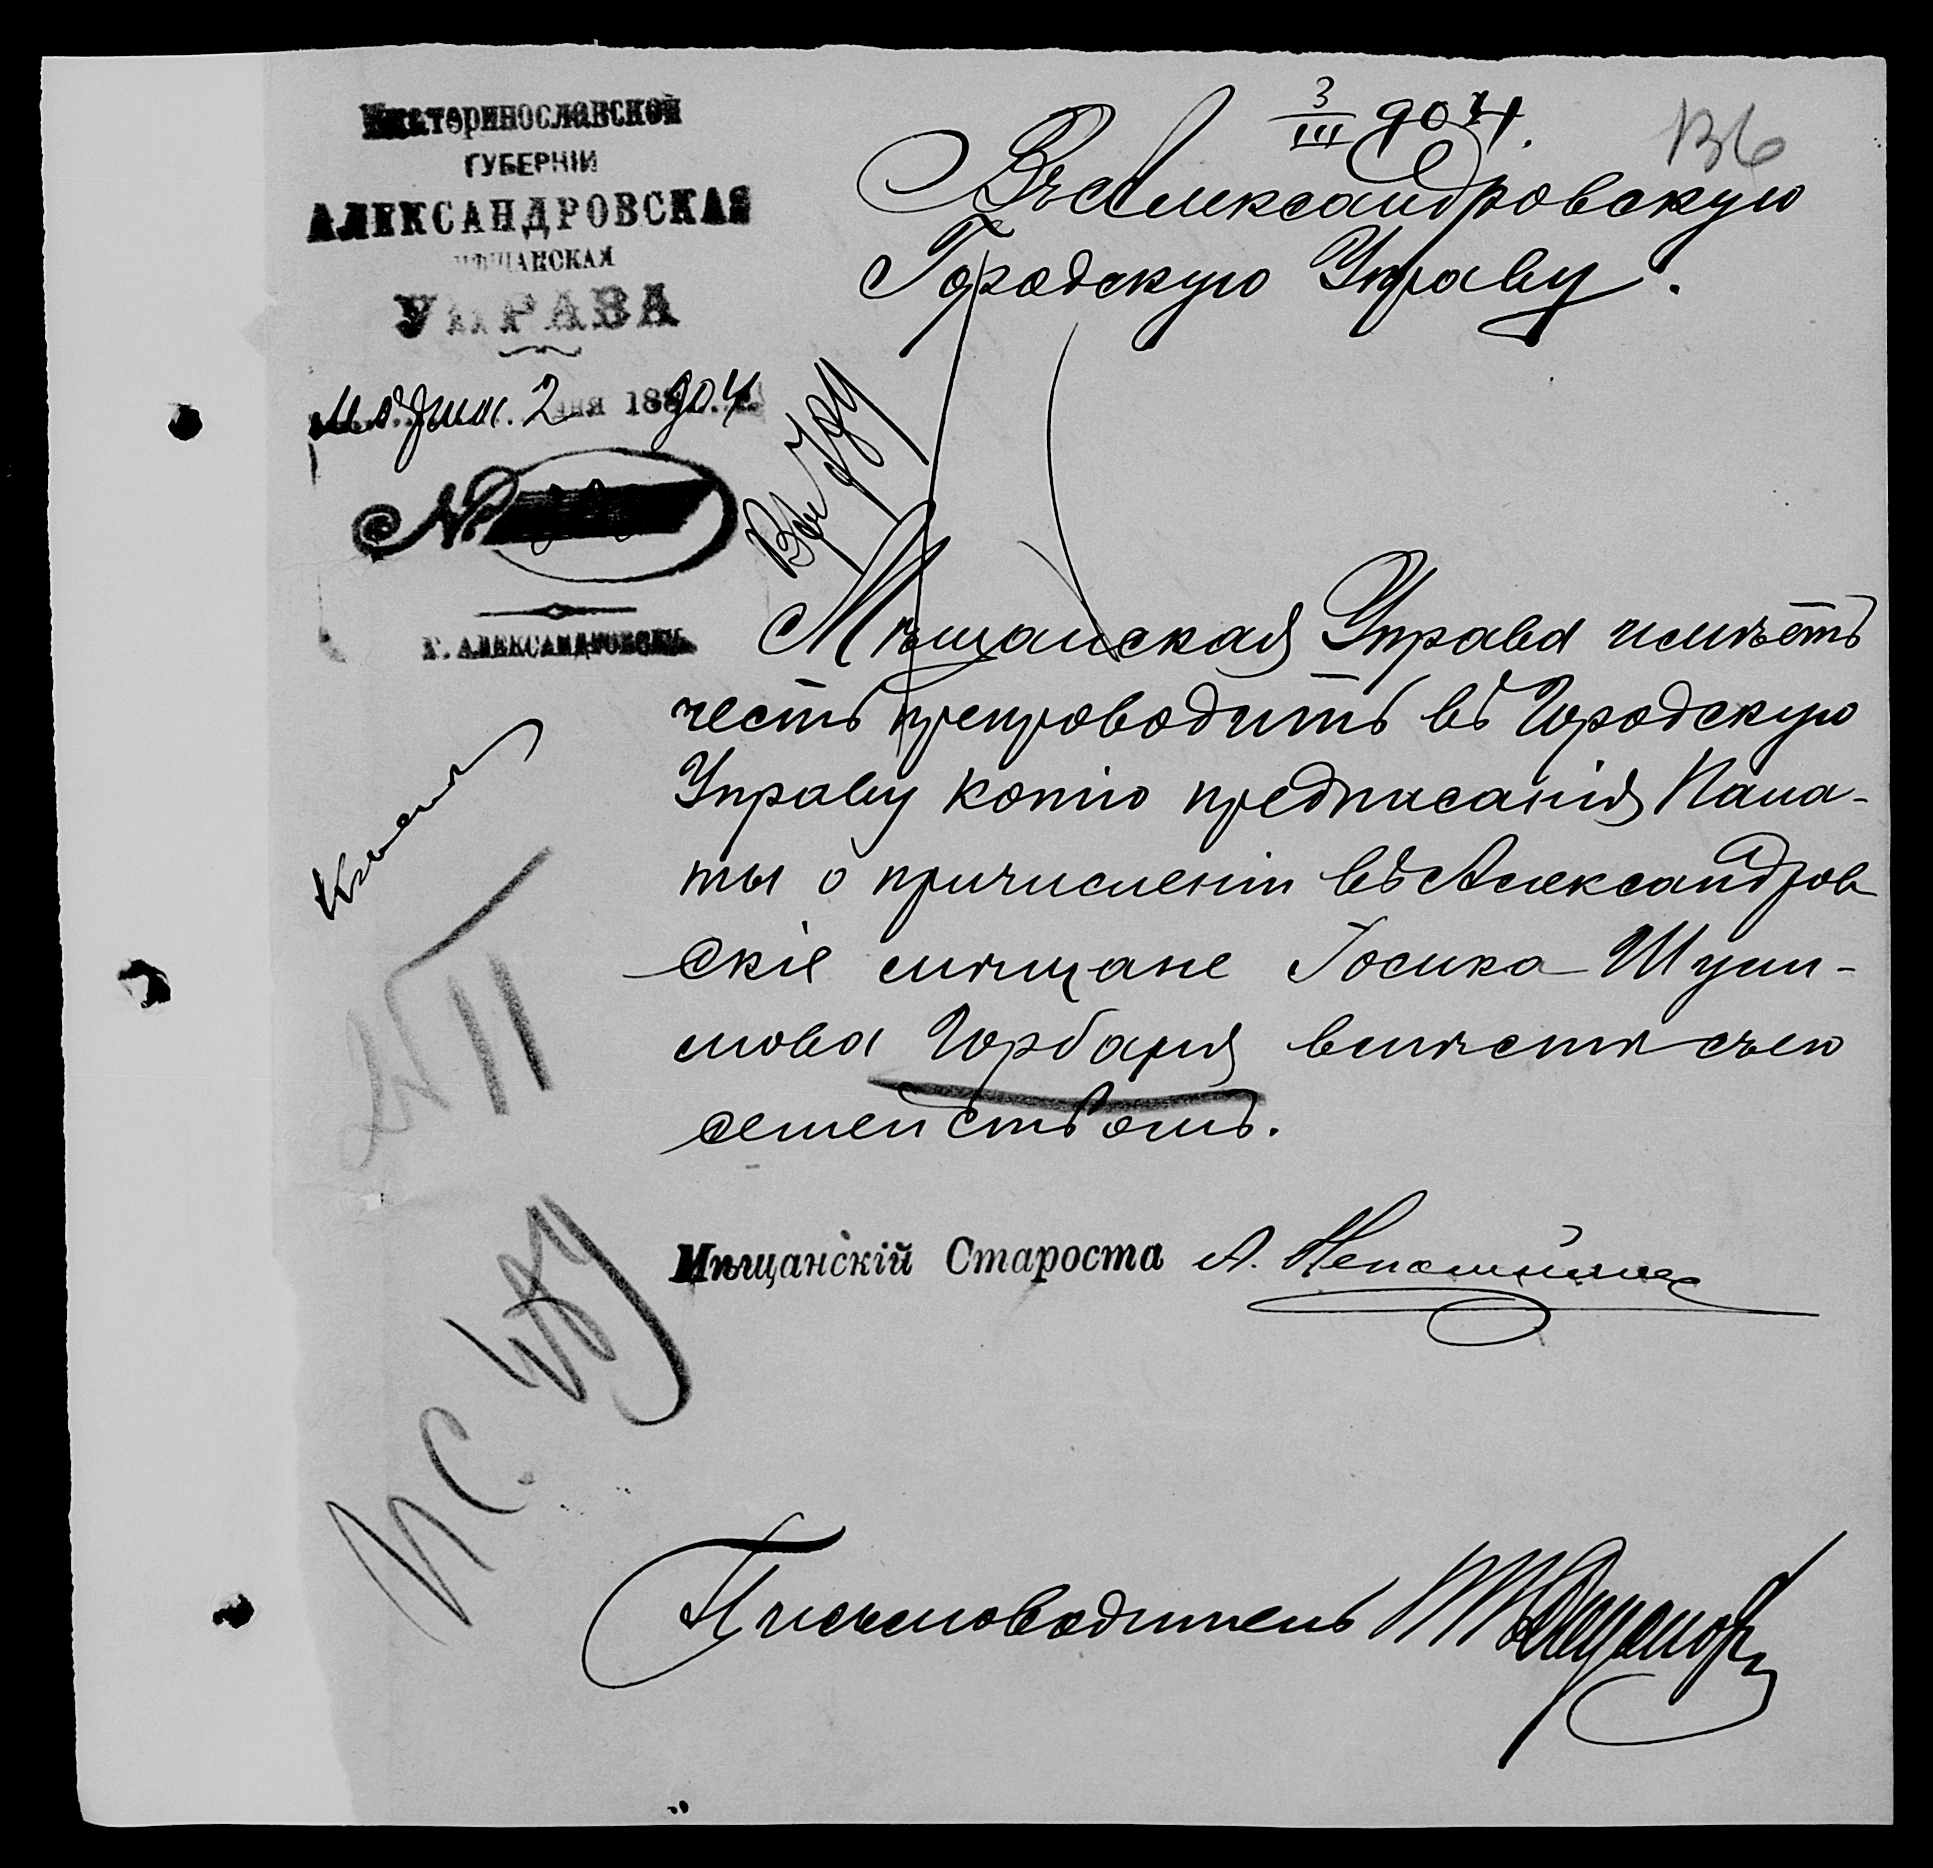 Екатеринославской
ГУБЕРНІИ
АЛЕКСАНДРОВСКАЯ
МѢЩАНСКАЯ
УПРАВА
2 дня 188 904
№
Г. АЛЕКСАНДРОВСКЪ
3/III 904.
136
Въ Александровскую
Городскую Управу.
Мѣщанская Управа имѣетъ
честь препроводить въ Городскую
Управу копію предписанія Пала-
ты о причисленіи въ Александров
скіе мѣщане Іосика Шули-
мова Горбаря вмѣстѣ съ его
семействомъ.
Мѣщанскій Староста А.
Письмоводитель